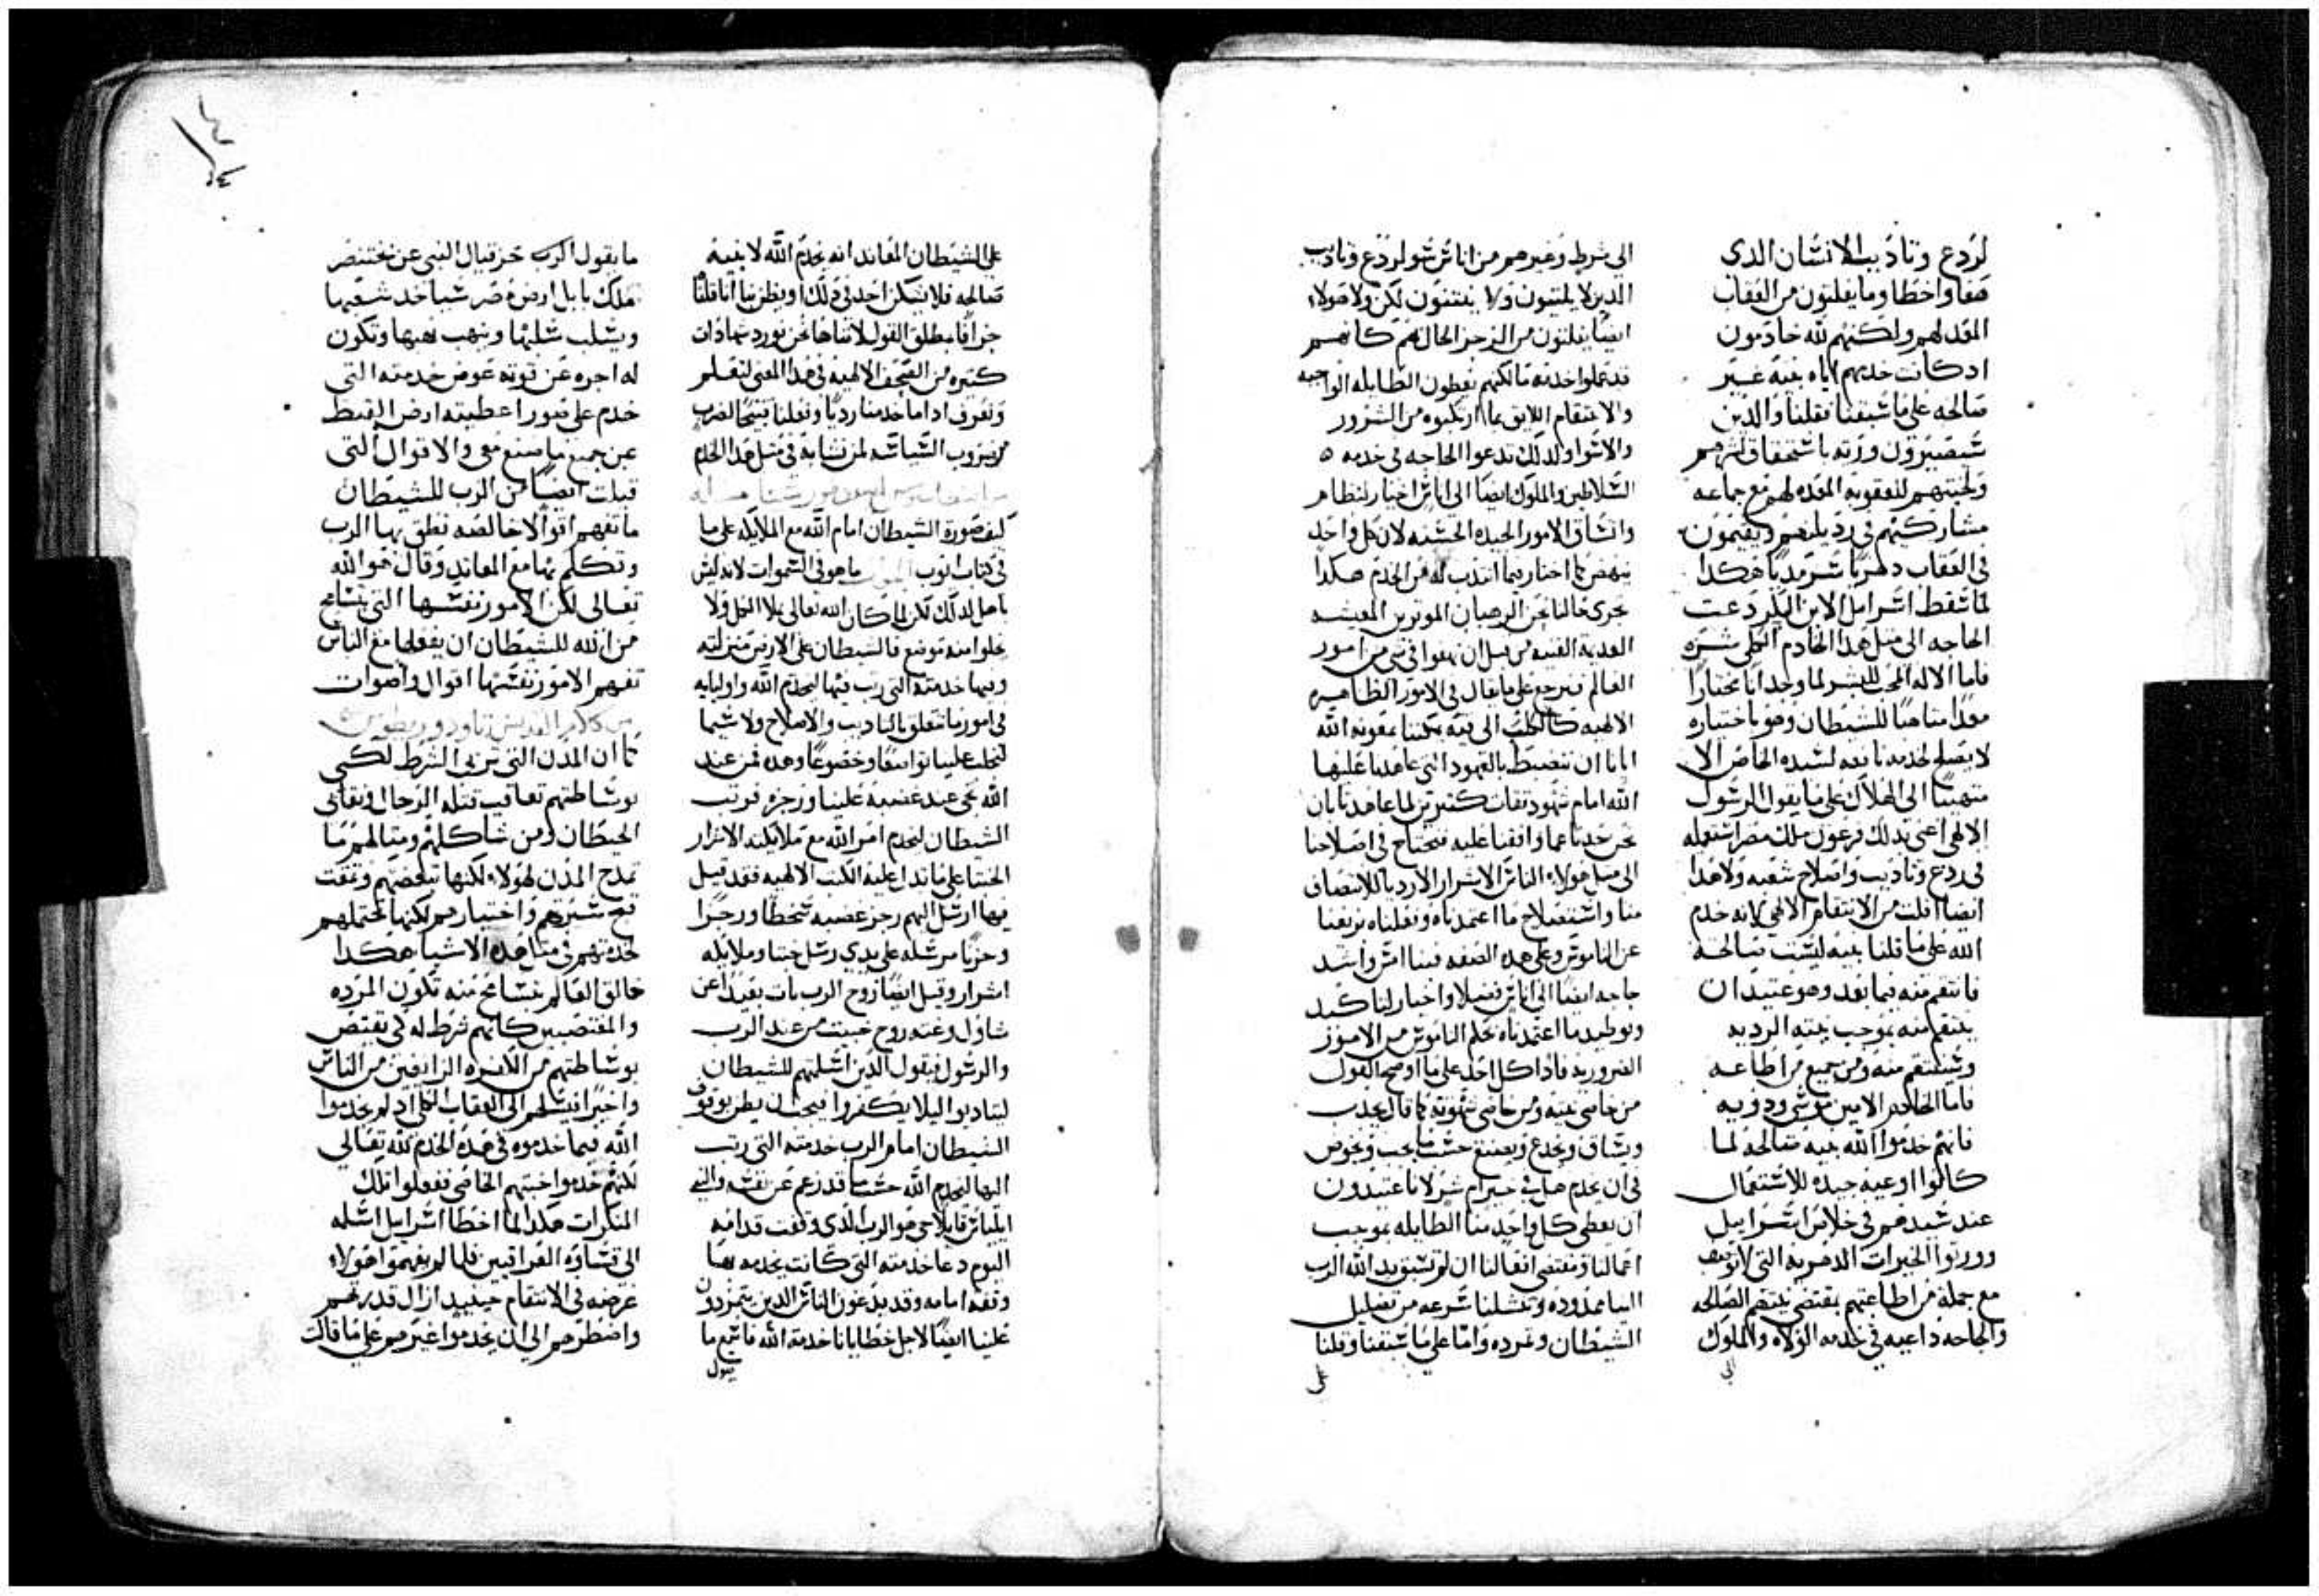 لردع وتاديب الانسان الذى
هفا واخطا وما يفلتون من العقاب
المعد لهم ولكنهم لله خادمون
اد كانت خدمتهم اياه بنيه غير
صالحه على ما سبقنا فقلنا والذين
سيصيرون ورثه باستحقاق لشرهم
ولخبثهم للعقوبه المعده لهم مع جماعه
مشاركيهم فى رديلتهم ويقيمون
فى العقاب دهريا سرمديا هكدا
لما سقط اسراييل الابن البكر دعت
الحاجه الى مثل هدا الخادم الكلى شره
فاما الاله المحب للبشر لما وجد انا مختارا
معدا متاهبا للشيطان وهو باختياره
لا يصلح لخدمه نافعه لسيده الخاص الا
متهييا الى الهلاك على ما يقول الرسول
الالهى اعنى بدلك فرعون ملك مصر استعمله
فى ردع وتاديب واصلاح شعبه ولا هدا
ايضا افلت من الانتقام الالهى لانه خدم
الله على ما قلنا بنيه ليست صالحه
فانتقم منه فيما بعد وهو عتيد ان
ينتقم منه بموجب نيته الرديه
وسينتقم منه ومن جميع من اطاعه
فاما الخادم الامين موسى ودويه
فانهم خدموا الله بنيه صالحه لما
كانوا اوعيه جيده للاستعمال
عند سيدهم فى خلاص اسراييل
وورثوا الخيرات الدهريه التى لا توصف
مع جملة من اطاعتهم بمقتضى نيتهم الصالحه
والحاجه داعيه فى خدمه الولاه والملوك
الى
الى شرط وغيرهم من اناس سو لردع وتاديب
الدين لا يلتيون ولا يفتنون لكن ولا هولاء
ايضا يفلتون من الزجر الحال بهم كانهم
قد عملوا خدمه مالكنهم يعطون الطايله الواجبه
والانتقام اللايق بما ارتكبوه من الشرور
والاسوا ولدلك تدعوا الحاجه فى خدمه
السلاطين والملوك ايضا الى اناس اخيار لنظام
واتساق الامور الجيده الحسنه لان كل واحد
ينهض لما اختار فيما انتدب له من الخدم هكدا
تجرى حالنا نحن الرهبان الموثرين المعيشه
العالم فيرجع على ما يقال فى الامور الظاهره
الالهيه كالكلب الى قيه يمكننا بمعونه الله
ايانا ان ننضبط بالعهود التى عاهدنا عليها
الله امام شهود ثقات كثيرين لما عاهدنا بان
نحن حدنا عما وافقنا عليه فنحتاج فى اصلاحنا
الى مثل هولاء الناس الاشرار الاردياء للانتصاف
منا واستصلاح ما اعتمدناه وفعلناه
عن الناموس وعلى هده الصفه
حاجه ايضا الى اناس فضلا واخيار لتاكيد
وتوطيد ما اعتمدناه بحكم الناموس من الامور
الضروريه فادا كل احد على ما اوضح القول
من خاص نيته ومن خاص شهوته كما قال يجدب
ويساق ويخدع ويصنع حسب ما يجب
فى ان يخدم صلح خير ام شر لانا عتيدون
ان نعطى كل واحد منا الطايله بموجب
اعمالنا ومقتضى افعالنا ان لم تستبق يد الله الرب
الينا ممدوده وتنشلنا سرعه من تضليل
الشيطان وتمرده واما على ما سبقنا وقلنا
على
على الشيطان المعاند انه يخدم الله لا بنيه
صالحه فلا يشكن احد فى دلك او يظن بنا اننا قلنا
جزافا مطلق القول لاننا ها نحن نورد شهادات
كتيره من الصحف الالهيه فى هدا المعنى لنعلم
ونعرف اد اما خدمنا رديا وفعلنا قبيحا لضرب
من ضروب السياسه لمن نشابه فى مثل هدا الخدم
كيف صورة الشيطان امام الله مع الملايكه على ما
فى كتاب ايوب ما هو فى السموات لانه ليس
باهل لدلك لكن لما كان الله تعالى يملا الكل ولا
يخلوا منه موضع فالشيطان على الارض منزلته
وفيها خدمته التى رتب فيها ليخدم الله واوليايه
فى امور ما تتعلق بالتاديب والاصلاح ولا سيما
لتجلب علينا تواضعا وخضوعا وهده فمن عند
الله تجى عند غضبه علينا وزجره فرتب
الشيطان ليخدم امر الله مع ملايكته الاشرار
الخبثا على ما تدل عليه الكتب الالهيه فقد قيل
فيها ارسل اليهم رجز غضبه سخطا ورجزا
وحزنا مرسله على يدى رسل خبثا وملايكه
اشرار وقيل ايضا روح الرب بات بعيدا عن
شاول وغمه روح خبيث من عند الرب
والرسول فيقول الدين اسلمتهم للشيطان
ليتادبوا ليلا يكفروا فيجب ان يظن بوقوف
الشيطان امام الرب خدمته التى رتب
اليها ليخدم الله حسب ما قد زعم عن نفسه والنبى
ايلياس قايلا حى هو الرب الدى وقفت قدامه
اليوم دعا خدمته التى كانت يخدمه بها
وقفه امامه وقد يدعون الناس الدين يتمردون
علينا ايضا لاجل خطايانا خدمة الله فاسمع ما
يقول
ما يقول الرب حزقيال النبى عن بختنصر
ملك بابل ارض مصر سيا خد شعبها
ويسلب سلبها وينهب نهبها وتكون
له اجره عن قوته عوض خدمته التى
خدم على صور اعطيته ارض القبط
عن جميع ما صنع معى والاقوال التى
قيلت ايضا من الرب للشيطان
ما تفهم اقوالا خالصه نطق بها الرب
وتكلم بها مع المعاند وقال هو الله
تعالى لكن الامور نفسها التى يتسامح
من الله للشيطان ان يفعلها مع الناس
تفهم الامور نفسها اقوال واصوات
من كلام القديس تاودوريطوس
كما ان المدن التى تربى الشرط لكى
بوساطتهم تعاقب قتلة الرجال ونقابى
الحيطان ومن شاكلهم ومثالهم ما
تمدح المدن لهولاء لكنها تبغضهم وتمقت
قبح سيرتهم واختيارهم لكنها تحتملهم
لخدمتهم فى مثل هده الاشيا هكدا
خالق العالم بتسامح منه تكون المرده
والمغتصبين كانهم شرط له لكى يقتص
بوساطتهم من الكفره الزايغين من الناس
واخيرا فيسلمهم الى العقاب الكلى اد لم يخدموا
الله فيما خدموه فى هده الخدم لله تعالى
لكنهم خدموا خبثهم الخاص ففعلوا تلك
المنكرات هكدا لما اخطا اسراييل اسلمه
الى قساوة العراقيين فلما لم يفهموا هولاء
غرضه فى الانتقام حينيد ازال قدرتهم
واضطرهم الى ان يخدموا غيرهم على ما قالت